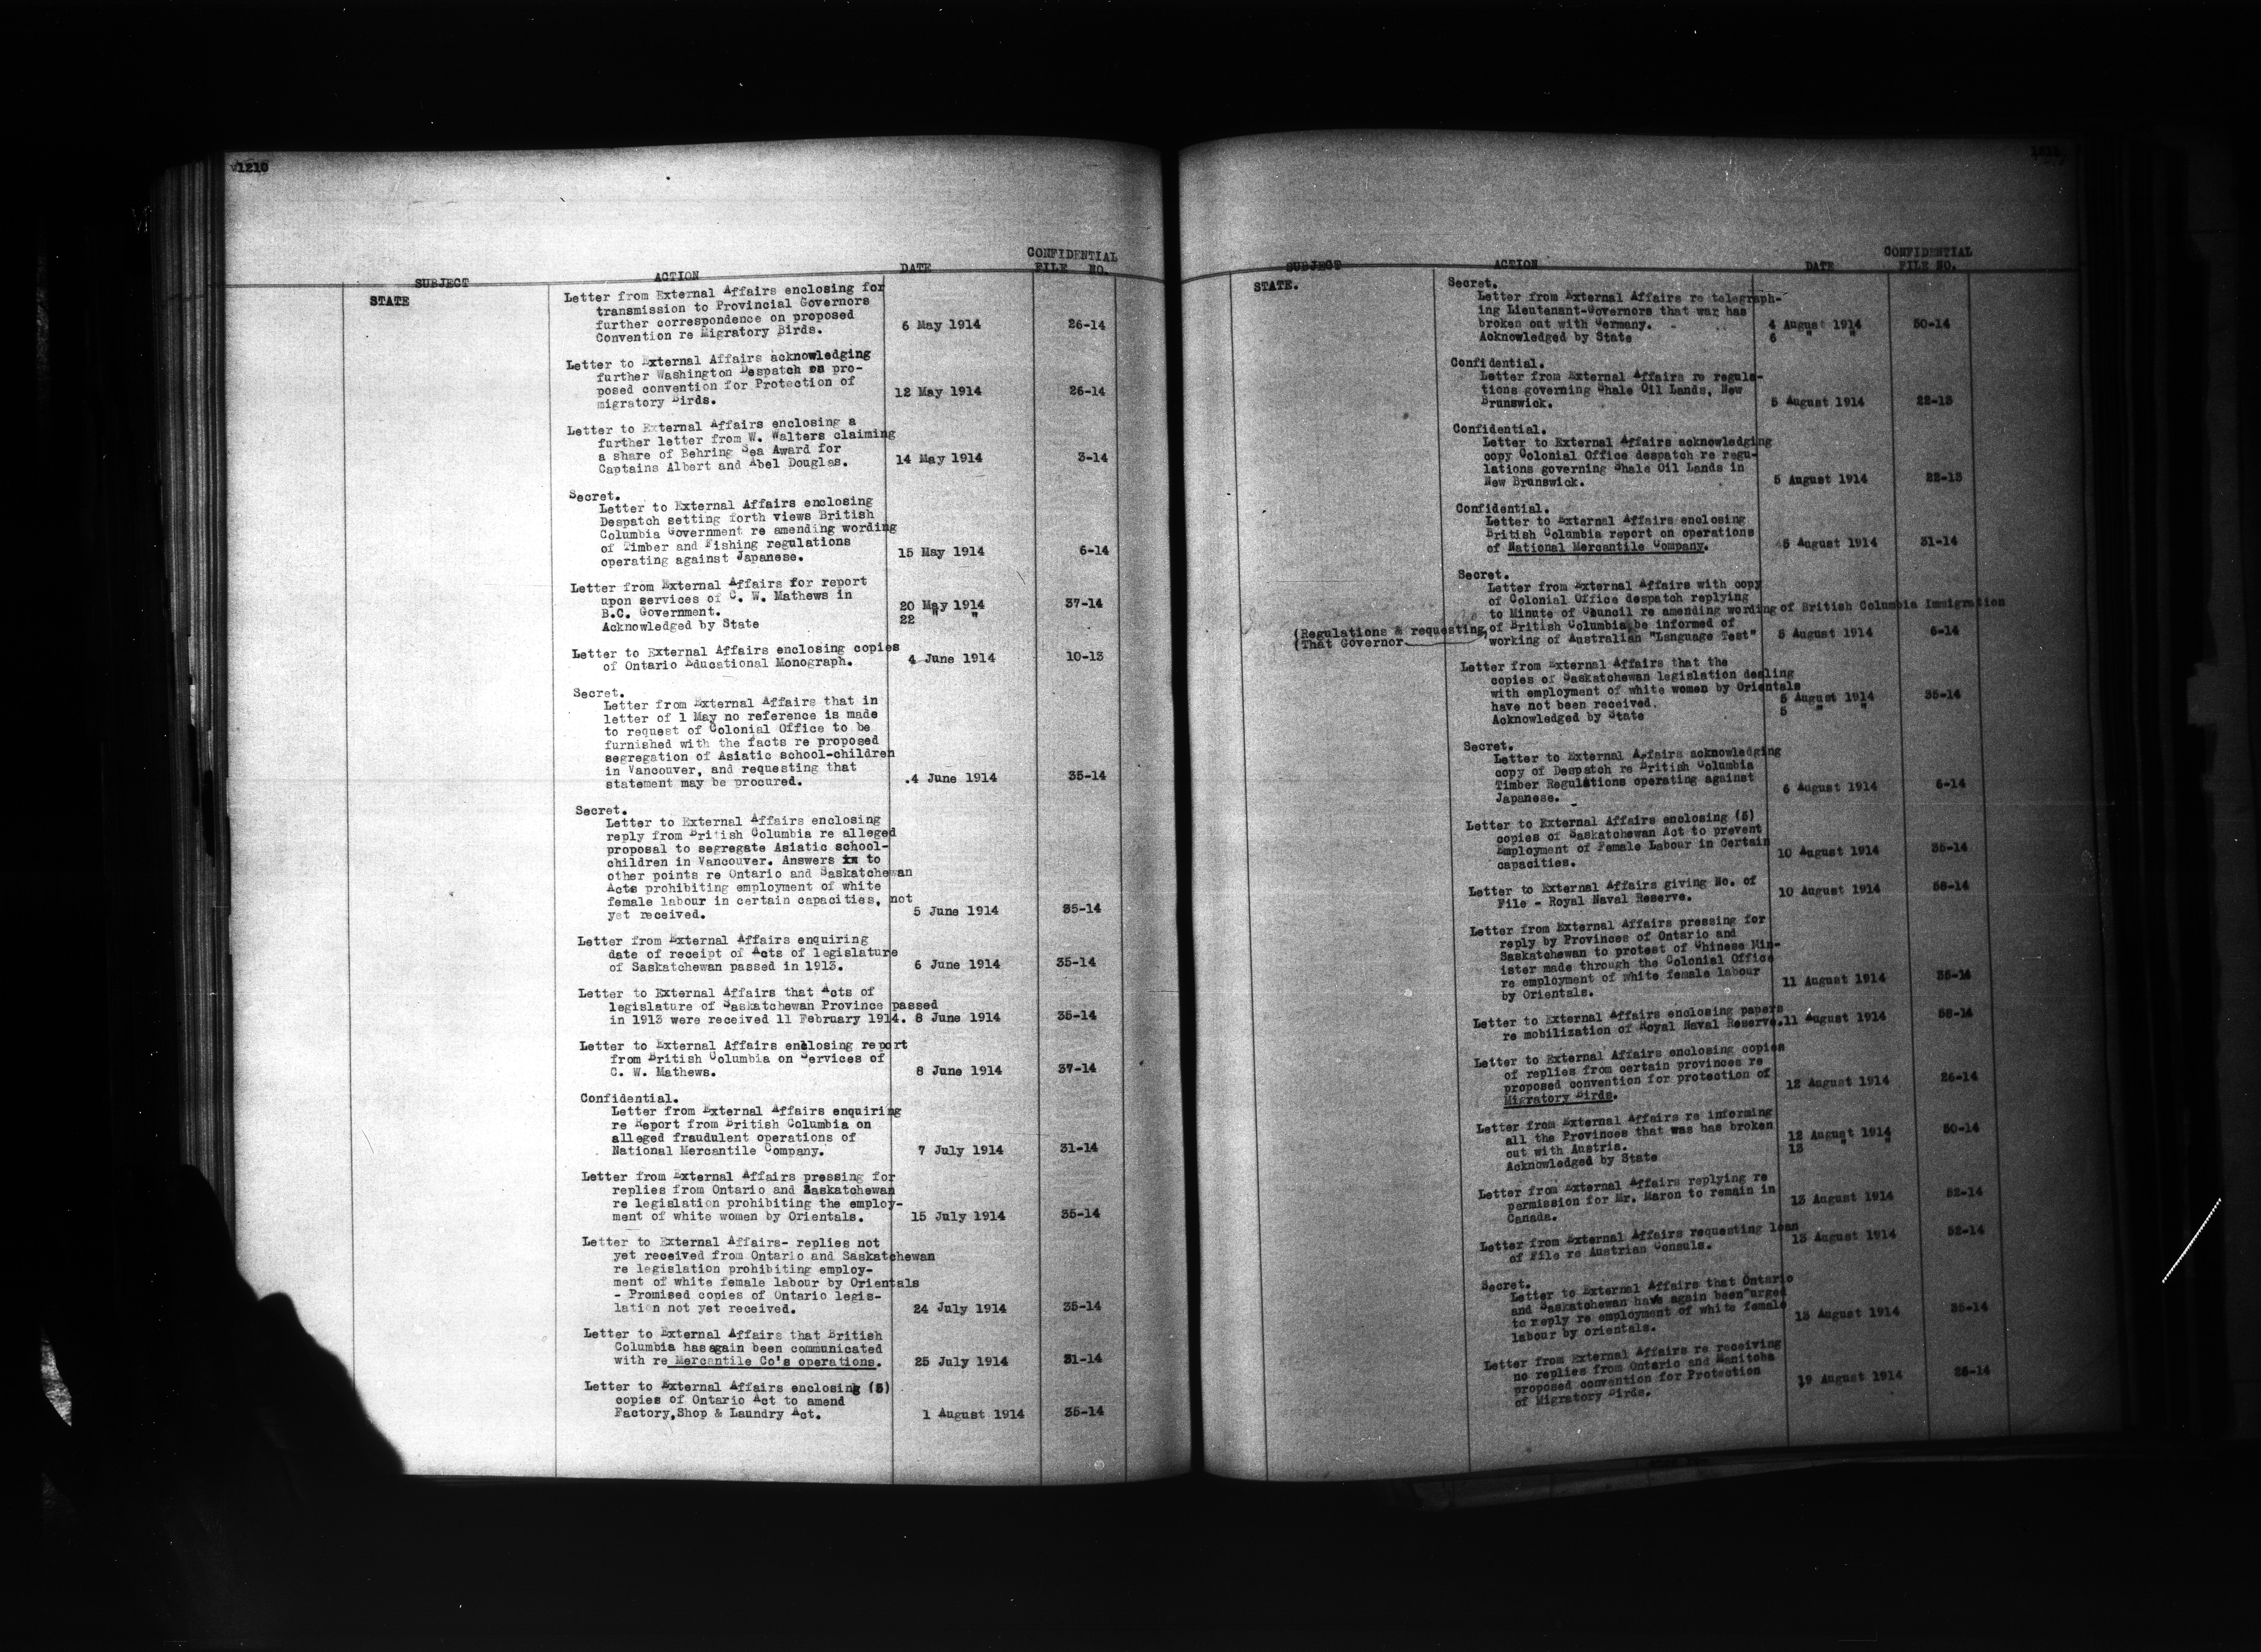 1210
CONFIDENTIAL
SUBJECT ACTION DATE FILE NO.
STATE
Letter from External Affairs enclosing for
transmission to Provincial Governors
further correspondence on proposed
Convention re Migratory Birds. 6 May 1914 26-14
Letter to External Affairs acknowledging
further Washington Despatch on pro-
posed convention for Protection of
migratory Birds. 12 May 1914 26-14
Letter to External Affairs enclosing a
further letter from W. Walters claiming
a share of Behring Sea Award for
Captains Albert and Abel Douglas. 14 May 1914 3-14
Secret.
Letter to External Affairs enclosing
Despatch setting forth views British
Columbia Government re amending wording
of Timber and Fishing regulations
operating against Japanese. 15 May 1914 6-14
Letter from External Affairs for report
upon services of C. W. Mathews in
B.C. Government. 20 May 1914 37-14
Acknowledged by State 22 " "
Letter to External Affairs enclosing copies
of Ontario Educational Monograph. 4 June 1914 10-13
Secret.
Letter from External Affairs that in
letter of 1 May no reference is made
to request of Colonial Office to be
furnished with the facts re proposed
segregation of Asiatic school-children
in Vancouver, and requesting that
statement may be procured. .4 June 1914 35-14
Secret.
Letter to External Affairs enclosing
reply from British Columbia re alleged
proposal to segregate Asiatic school-
children in Vancouver. Answers in to
other points re Ontario and Saskatchewan
Acts prohibiting employment of white
female labour in certain capacities, not
yet received. 5 June 1914 35-14
Letter from External Affairs enquiring
date of receipt of Acts of legislature
of Saskatchewan passed in 1913. 6 June 1914 35-14
Letter to External Affairs that Acts of
legislature of Saskatchewan Province passed
in 1913 were received 11 February 1914. 8 June 1914 35-14
Letter to External Affairs enclosing report
from British Columbia on Services of
C. W. Mathews. 8 June 1914 37-14
Confidential.
Letter from External Affairs enquiring
re Report from British Columbia on
alleged fraudulent operations of
National Mercantile Company. 7 July 1914 31-14
Letter from External Affairs pressing for
replies from Ontario and Saskatchewan
re legislation prohibiting the employ-
ment of white women by Orientals. 15 July 1914 35-14
Letter to External Affairs- replies not
yet received from Ontario and Saskatchewan
re legislation prohibiting employ-
ment of white female labour by Orientals
- Promised copies of Ontario legis-
lation not yet received. 24 July 1914 35-14
Letter to External Affairs that British
Columbia has again been communicated
with re Mercantile Co's operations. 25 July 1914 31-14
Letter to External Affairs enclosing (5)
copies of Ontario Act to amend
Factory,Shop & Laundry Act. 1 August 1914 35-14
CONFIDENTIAL
SUBJECT ACTION DATE FILE NO.
STATE.
Secret.
Letter from External Affairs re telegraph-
ing Lieutenant-Governors that war has
broken out with Germany. 4 August 1914 50-14
Acknowledged by State 6 " "
Confidential.
Letter from External Affairs re regula-
tions governing Shale Oil Lands, New
Brunswick. 5 August 1914 22-13
Confidential.
Letter to External Affairs acknowledging
copy Colonial Office despatch re regu-
lations governing Shale Oil Lands in
New Brunswick. 5 August 1914 22-13
Confidential.
Letter to External Affairs enclosing
British Columbia report on operations
of National Mercantile Company. 5 August 1914 31-14
Secret.
Letter from External Affairs with copy
of Colonial Office despatch replying
to Minute of Council re amending wording of British Columbia Immigration
(Regulations & requesting of British Columbia be informed of
(That Governor working of Australian "Language Test" 5 August 1914 6-14
Letter from External Affairs that the
copies of Saskatchewan legislation dealing
with employment of white women by Orientals
have not been received. 5 August 1914 35-14
Acknowledged by State 5 " "
Secret.
Letter to External Affairs acknowledging
copy of Despatch re British Columbia
Timber Regulations operating against
Japanese. 6 August 1914 6-14
Letter to External Affairs enclosing (5)
copies of Saskatchewan Act to prevent
Employment of Female Labour in Certain
capacities. 10 August 1914 35-14
Letter to External Affairs giving No. of
File - Royal Naval Reserve. 10 August 1914 58-14
Letter from External Affairs pressing for
reply by Provinces of Ontario and
Saskatchewan to protest of Chinese Min-
ister made through the Colonial Office
re employment of white female labour
by Orientals. 11 August 1914 35-14
Letter to External Affairs enclosing papers
re mobilization of Royal Naval Reserve. 11 August 1914 58-14
Letter to External Affairs enclosing copies
of replies from certain provinces re
proposed convention for protection of
Migratory Birds. 12 August 1914 26-14
Letter from External Affairs re informing
all the Provinces that was has broken
out with Austria. 12 August 1914 50-14
Acknowledged by State 13 " "
Letter from External Affairs replying re
permission for Mr. Maron to remain in
Canada. 13 August 1914 52-14
Letter from External Affairs requesting loan
of File re Austrian Consuls. 13 August 1914 52-14
Secret.
Letter to External Affairs that Ontario
and Saskatchewan have again been urged
to reply re employment of white female
labour by orientals. 13 August 1914 35-14
Letter from External Affairs re receiving
no replies from Ontario and Manitoba
proposed convention for Protection
of Migratory Birds. 19 August 1914 26-14